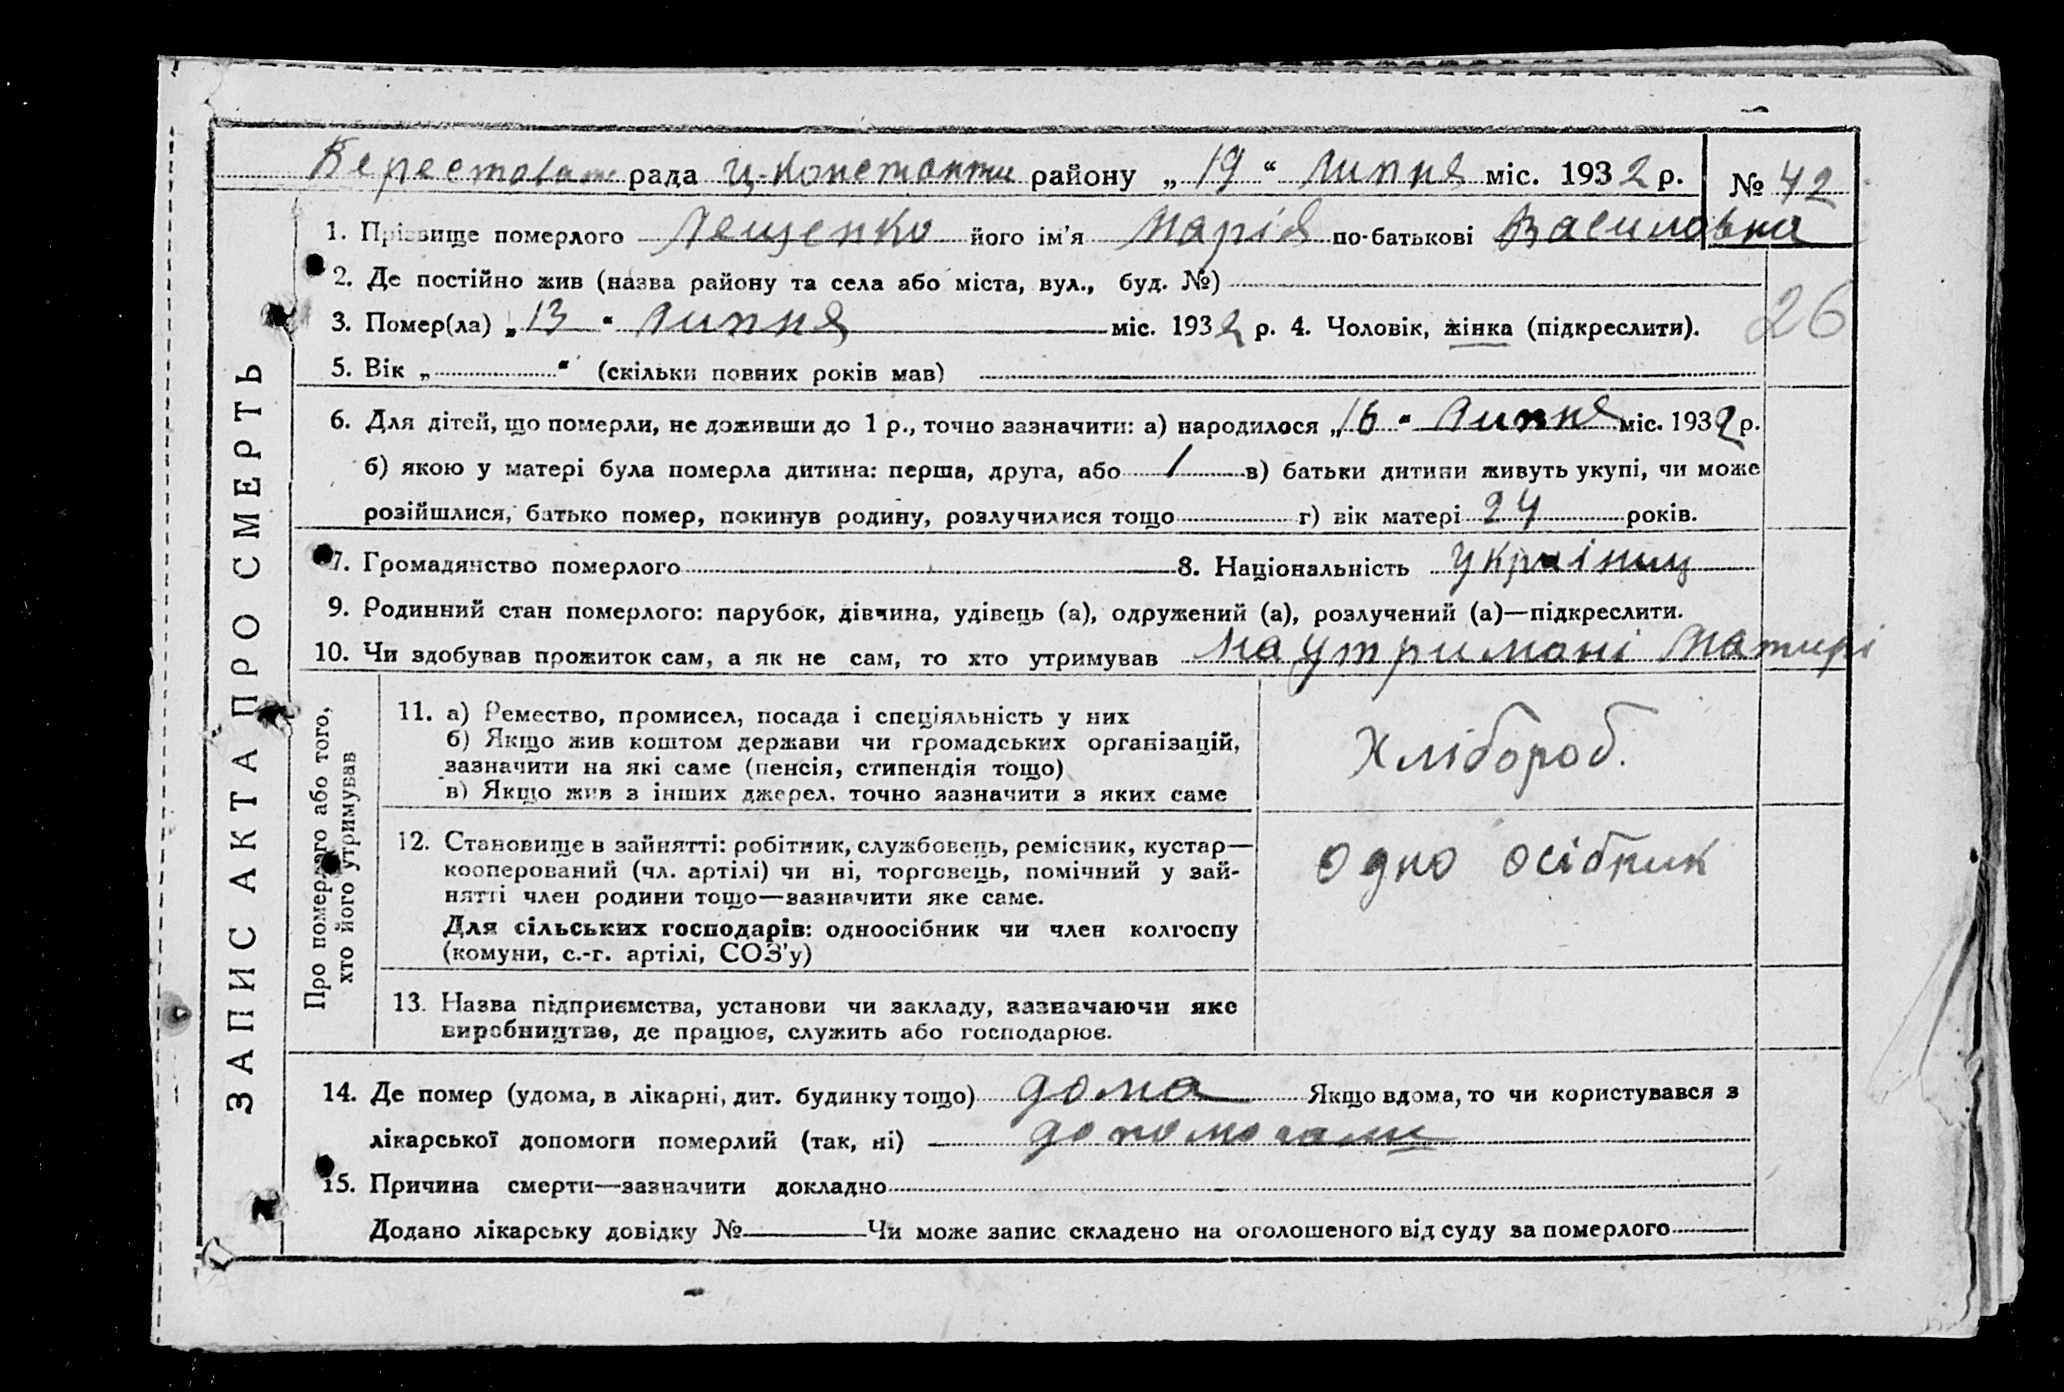 Берестова рада Ц-Константи району „19“ Липня міс. 1932 р. № 42
1. Прізвище померлого Лещенко його ім’я Марія по-батькові Василовна
2. Де постійно жив (назва району та села або міста, вул., буд. №)
3. Помер(ла) „13“ Липня міс. 1932 р. 4. Чоловік, жінка (підкреслити).
26
5. Вік „ “ (скільки повних років мав)
6. Для дітей, що померли, не доживши до 1 р., точно зазначити: а) народилося „16“ Липня міс. 1932 р.
б) якою у матері була померла дитина: перша, друга, або 1 в) батьки дитини живуть укупі, чи може
розійшлися, батько помер, покинув родину, розлучилися тощо г) вік матері 24 років.
7. Громадянство померлого 8. Національність україниц
9. Родинний стан померлого: парубок, дівчина, удівець (а), одружений (а), розлучений (а)—підкреслити.
10. Чи здобував прожиток сам, а як не сам, то хто утримував на утримані матирі
ЗАПИС АКТА ПРО СМЕРТЬ
Про померлого або того,
хто його утримував
11. а) Ремество, промисел, посада і спеціяльність у них
б) Якщо жив коштом держави чи громадських організацій,
зазначити на які саме (пенсія, стипендія тощо)
в) Якщо жив з інших джерел, точно зазначити з яких саме
Хлібороб.
12. Становище в зайнятті: робітник, службовець, ремісник, кустар—
кооперований (чл. артілі) чи ні, торговець, помічний у зай-
нятті член родини тощо—зазначити яке саме.
Для сільських господарів: одноосібник чи член колгоспу
(комуни, с.-г. артілі, СОЗ’у)
одно осібник
13. Назва підприємства, установи чи закладу, зазначаючи яке
виробництво, де працює, служить або господарює.
14. Де помер (удома, в лікарні, дит. будинку тощо) дома Якщо вдома, то чи користувався з
лікарської допомоги померлий (так, ні)
15. Причина смерти—зазначити докладно
Додано лікарську довідку № Чи може запис складено на оголошеного від суду за померлого